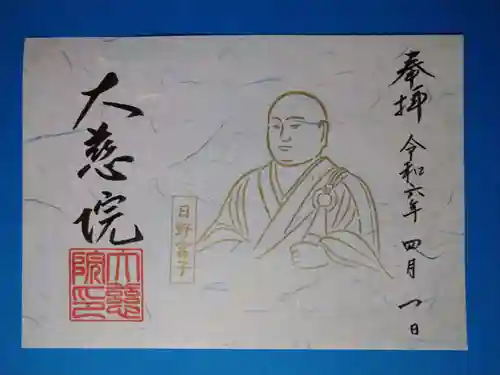 奉拝
令和六年 四月 一日
日野富子
大慈院
大慈
院印